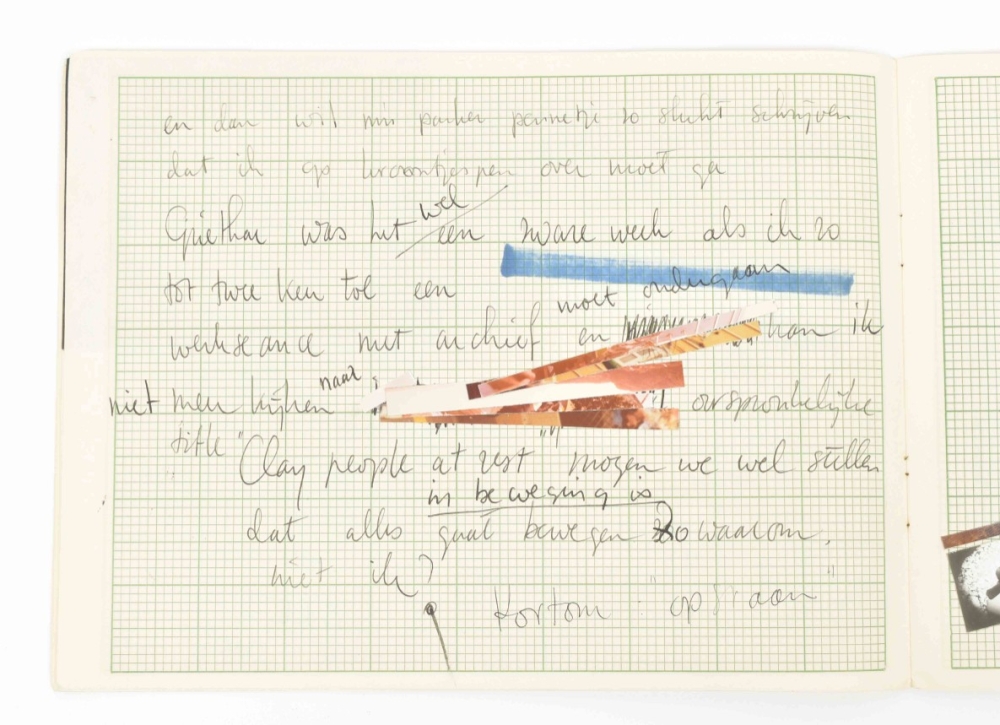 en dan wil mn parker pennetje zo slecht schrijven
dat ik op kroontjespen over moet ga
was het wel een zware week als ik zo
tot twee ken tol een
moet ondergaan
werkseance met archief en kan ik
niet meer kijken naar oorspronkelijke
title "Clay people at rest" mogen we wel stellen
in beweging is
dat alles gaat bewegen zo waarom,
niet ik?
Kortom "op aan"